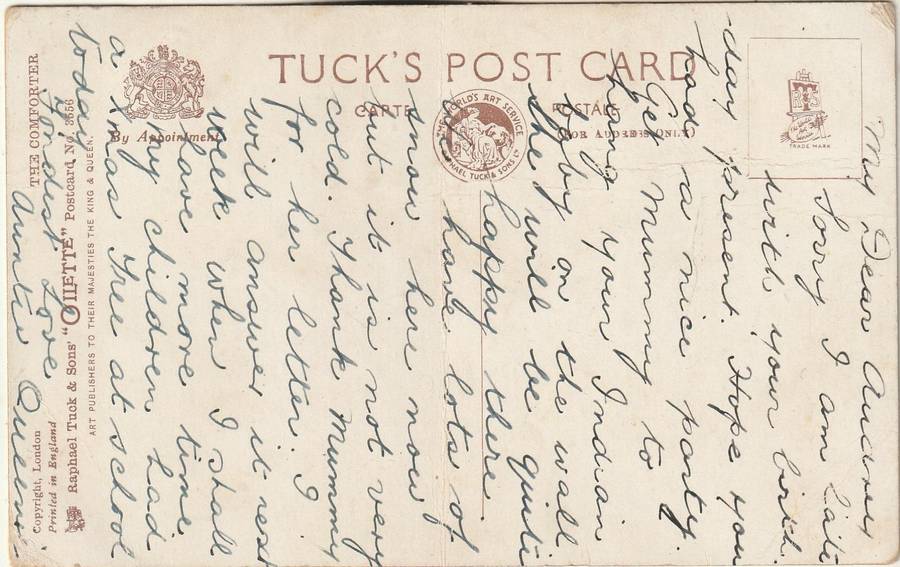 TUCK'S POST CARD
CARTE POSTALE
(FOR ADDRESS ONLY)
By Appointment
THE WORLD'S ART SERVICE
RAPHAEL TUCK & SONS LD
TRADE MARK
THE COMFORTER
Raphael Tuck & Sons' "OILETTE" Postcard No. 3556
ART PUBLISHERS TO THEIR MAJESTIES THE KING & QUEEN.
Copyright, London
Printed in England
My Dear Audrey
Sorry I am late
with your birth-
-day present. Hope you
had a nice party.
Get Mummy to
hang your Indian
Baby on the wall
she will be quite
happy there
We have lots of
snow here now
but it is not very
cold. Thank Mummy
for her letter. I
will answer it next
week when I shall
have more time
My children had
a Xmas Tree at school
today.
Fondest Love
Auntie Queenie